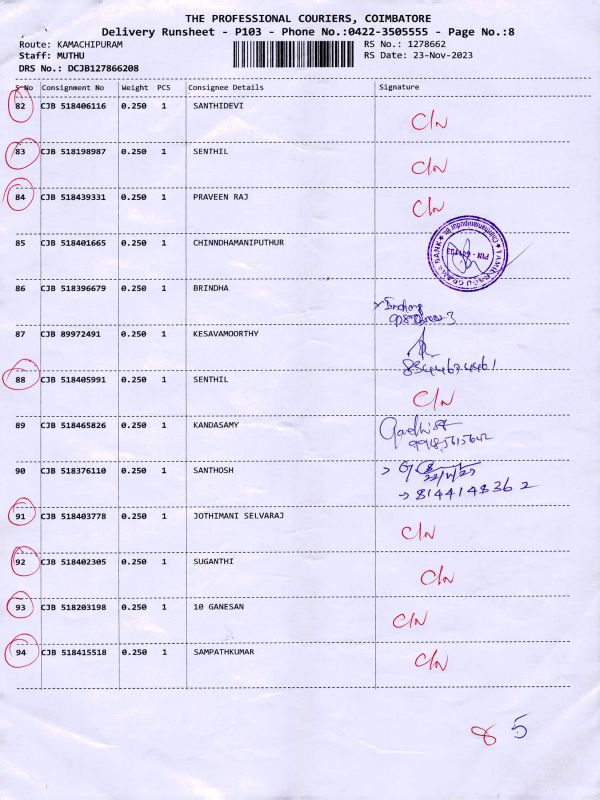 THE PROFESSIONAL COURIERS, COIMBATORE
Delivery Runsheet - P103 - Phone No.:0422-3505555 - Page No.:8
Route: KAMACHIPURAM RS No.: 1278662
Staff: MUTHU RS Date: 23-Nov-2023
DRS No.: DCJB127866208
S No Consignment No Weight PCS Consignee Details Signature
82 CJB 518406116 0.250 1 SANTHIDEVI C/N
83 CJB 518198987 0.250 1 SENTHIL C/N
84 CJB 518439331 0.250 1 PRAVEEN RAJ C/N
85 CJB 518401665 0.250 1 CHINNDHAMANIPUTHUR
86 CJB 518396679 0.250 1 BRINDHA
87 CJB 89972491 0.250 1 KESAVAMOORTHY
88 CJB 518405991 0.250 1 SENTHIL C/N
89 CJB 518465826 0.250 1 KANDASAMY
90 CJB 518376110 0.250 1 SANTHOSH
8144148362
91 CJB 518403778 0.250 1 JOTHIMANI SELVARAJ C/N
92 CJB 518402305 0.250 1 SUGANTHI C/N
93 CJB 518203198 0.250 1 10 GANESAN C/N
94 CJB 518415518 0.250 1 SAMPATHKUMAR C/N
8 5